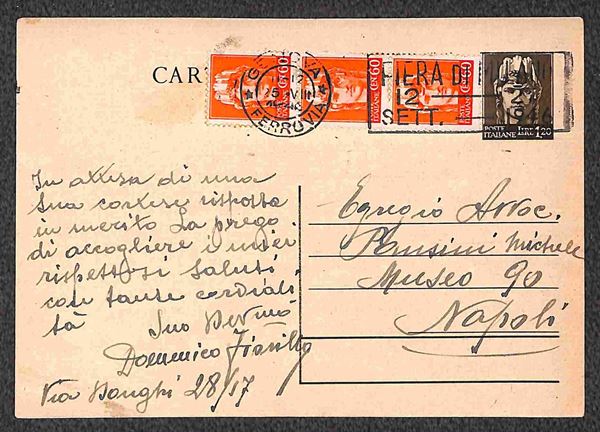 CAR
GENOVA
FERROVIA
FIERA DI
12
SETT. 1946
POSTE ITALIANE CEN 60
POSTE ITALIANE CEN 60
POSTE ITALIANE CEN 60
POSTE ITALIANE LIRE 1,20
In attesa di una
Sua cortese risposta
in merito La prego
di accogliere i miei
rispettosi saluti
con tante cordiali
tà
Suo Dev.mo
Domenico Fiorillo
Via Bonghi 28/17
Egregio Avvoc.
Pansini Michele
Museo 90
Napoli